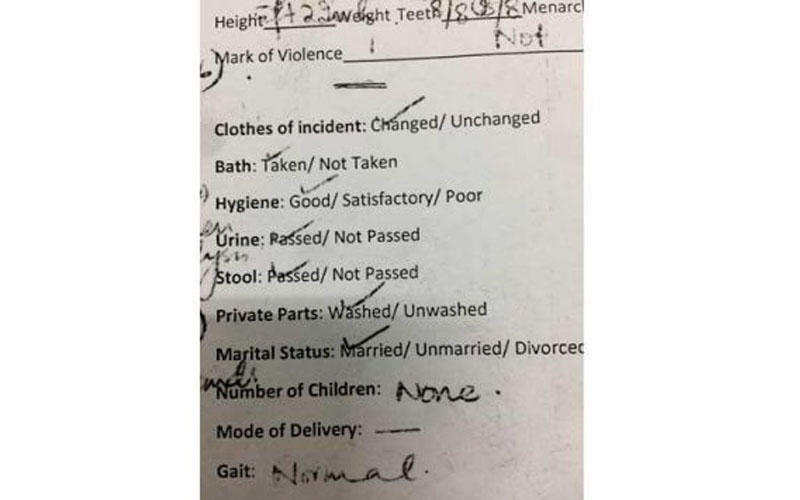 Height Weight Teeth 8/8 8/8 Menarc
Not
Mark of Violence
Clothes of incident: Changed/ Unchanged
Bath: Taken/ Not Taken
Hygiene: Good/ Satisfactory/ Poor
Urine: Passed/ Not Passed
Stool: Passed/ Not Passed
Private Parts: Washed/ Unwashed
Marital Status: Married/ Unmarried/ Divorced
Number of Children: None.
Mode of Delivery: —
Gait: Normal.